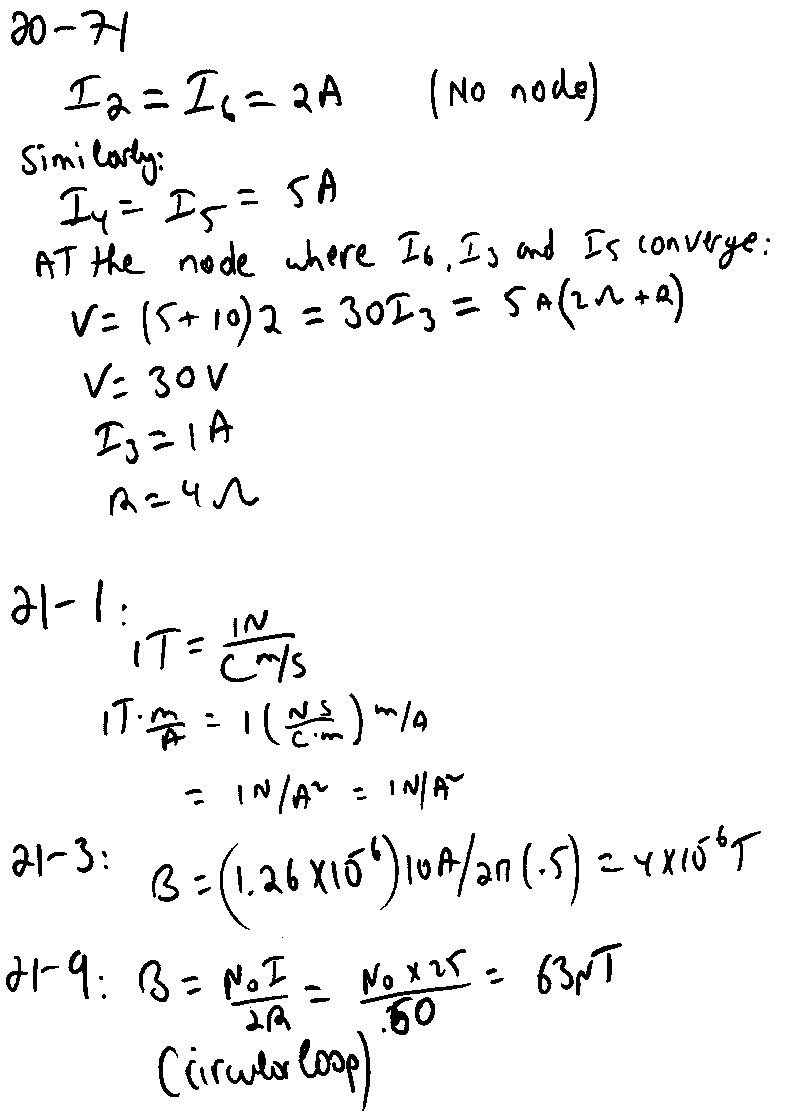 20-71
I₂ = I₆ = 2A (No node)
Similarly:
I₄ = I₅ = 5A
AT the node where I₆, I₃ and I₅ converge:
V = (5+10)2 = 30I₃ = 5A(2Ω+R)
V = 30V
I₃ = 1A
R = 4Ω
21-1:
1T = 1N/(C m/s)
1T·m/A = 1(N S/C·m) m/A
= 1N/A² = 1N/A²
21-3: B = (1.26 X10⁻⁶)10A/2π(.5) = 4X10⁻⁶T
21-9: B = μ₀I/2R = μ₀ X 25/.50 = 63μT
(circular loop)